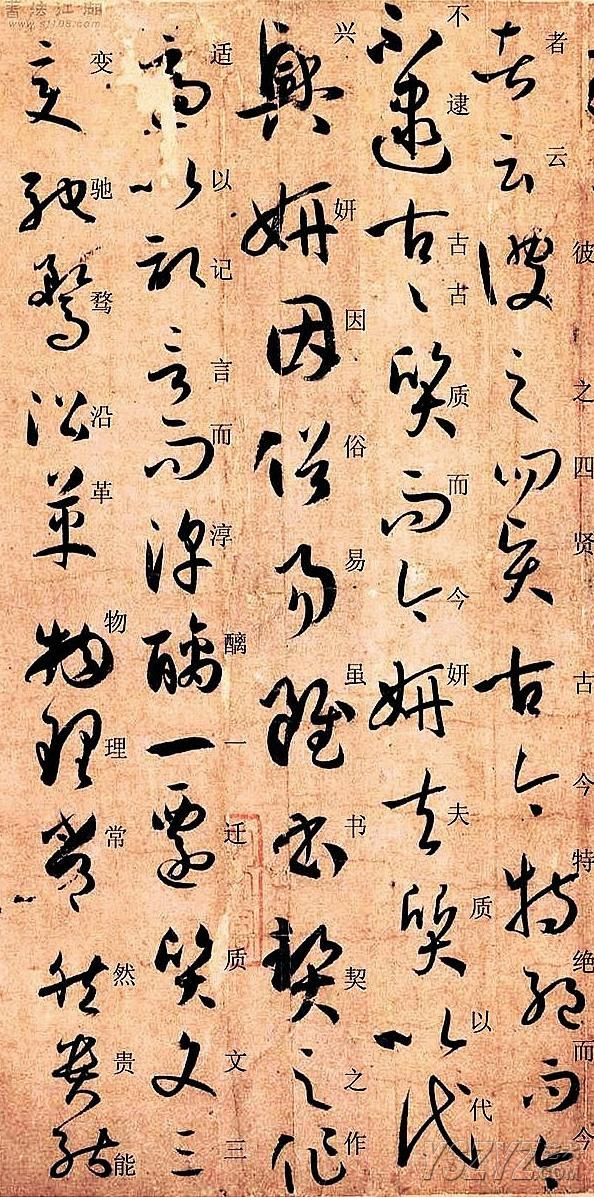 者云彼之四贤古今特绝而今
不逮古古质而今妍夫质以代
兴妍因俗易虽书契之作
适以记言而淳醨一迁质文三
变驰骛沿革物理常然贵能
書法江湖